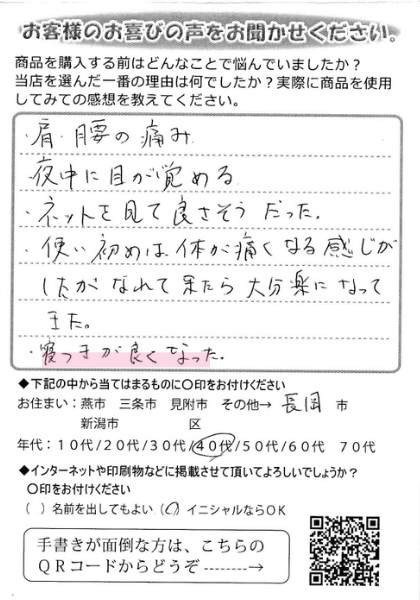 お客様のお喜びの声をお聞かせください。
商品を購入する前はどんなことで悩んでいましたか？
当店を選んだ一番の理由は何でしたか？実際に商品を使用
してみての感想を教えてください。
・肩・腰の痛み
夜中に目が覚める
・ネットを見て良さそうだった。
・使い初めは体が痛くなる感じが
したがなれて来たら大分楽になって
きた。
・寝つきが良くなった。
◆下記の中から当てはまるものに〇印をお付けください
お住まい：燕市 三条市 見附市 その他→ 長岡 市
新潟市 区
年代：１０代/２０代/３０代/４０代/５０代/６０代 ７０代
◆インターネットや印刷物などに掲載させて頂いてよろしいでしょうか？
〇印をお付けください
（ ）名前を出してもよい（〇）イニシャルならＯＫ
手書きが面倒な方は、こちらの
ＱＲコードからどうぞ--------→